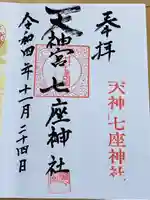 奉拝
天神宮 七座神社
令和四年十一月二十四日
天神 七座神社